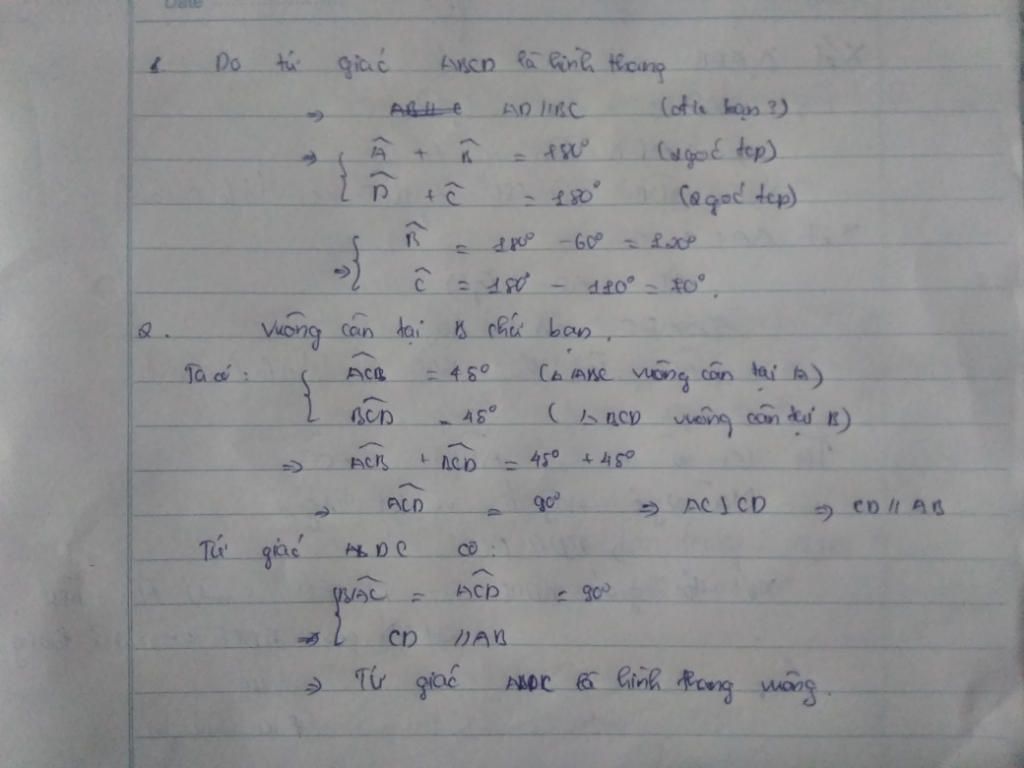 Date
1 Do tứ giác ABCD là hình thang
⇒ AD//BC (đ/n bạn?)
⇒ { Â + B̂ = 180° (2 góc tcp)
D̂ + Ĉ = 180° (2 góc tcp)
⇒ { B̂ = 180° - 60° = 120°
Ĉ = 180° - 110° = 70°.
2. Vuông cân tại B chứ bạn.
Ta có: { ACB = 45° (△ABC vuông cân tại A)
BCD = 45° (△BCD vuông cân tại B)
⇒ ACB + BCD = 45° + 45°
⇒ ACD = 90° ⇒ AC⊥CD ⇒ CD // AB
Tứ giác ABDC có:
{ BAC = ACD = 90°
⇒ CD //AB
⇒ Tứ giác ABDC là hình thang vuông.